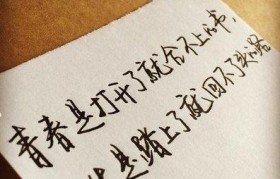 青春是打开了就合不上的书,
是踏上了就回不了头的路